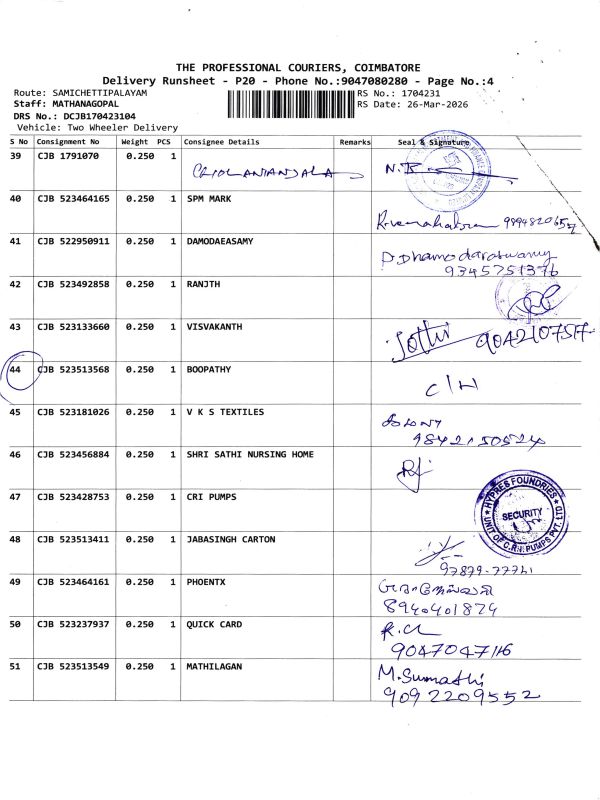 THE PROFESSIONAL COURIERS, COIMBATORE
Delivery Runsheet - P20 - Phone No.:9047080280 - Page No.:4
Route: SAMICHETTIPALAYAM RS No.: 1704231
Staff: MATHANAGOPAL RS Date: 26-Mar-2026
DRS No.: DCJB170423104
Vehicle: Two Wheeler Delivery
S No Consignment No Weight PCS Consignee Details Remarks Seal & Signature
39 CJB 1791070 0.250 1
40 CJB 523464165 0.250 1 SPM MARK
9894820657
41 CJB 522950911 0.250 1 DAMODAEASAMY
D Dhamodaraswamy
9345751376
42 CJB 523492858 0.250 1 RANJTH
43 CJB 523133660 0.250 1 VISVAKANTH
Jothi 9042107517
44 CJB 523513568 0.250 1 BOOPATHY
C/H
45 CJB 523181026 0.250 1 V K S TEXTILES
9842150524
46 CJB 523456884 0.250 1 SHRI SATHI NURSING HOME
47 CJB 523428753 0.250 1 CRI PUMPS
HYPRES FOUNDRIES
SECURITY
UNIT OF C.R.I. PUMPS PVT. LTD
48 CJB 523513411 0.250 1 JABASINGH CARTON
97879-77721
49 CJB 523464161 0.250 1 PHOENTX
8940401874
50 CJB 523237937 0.250 1 QUICK CARD
9047047116
51 CJB 523513549 0.250 1 MATHILAGAN
M.Sumathi
9092209552